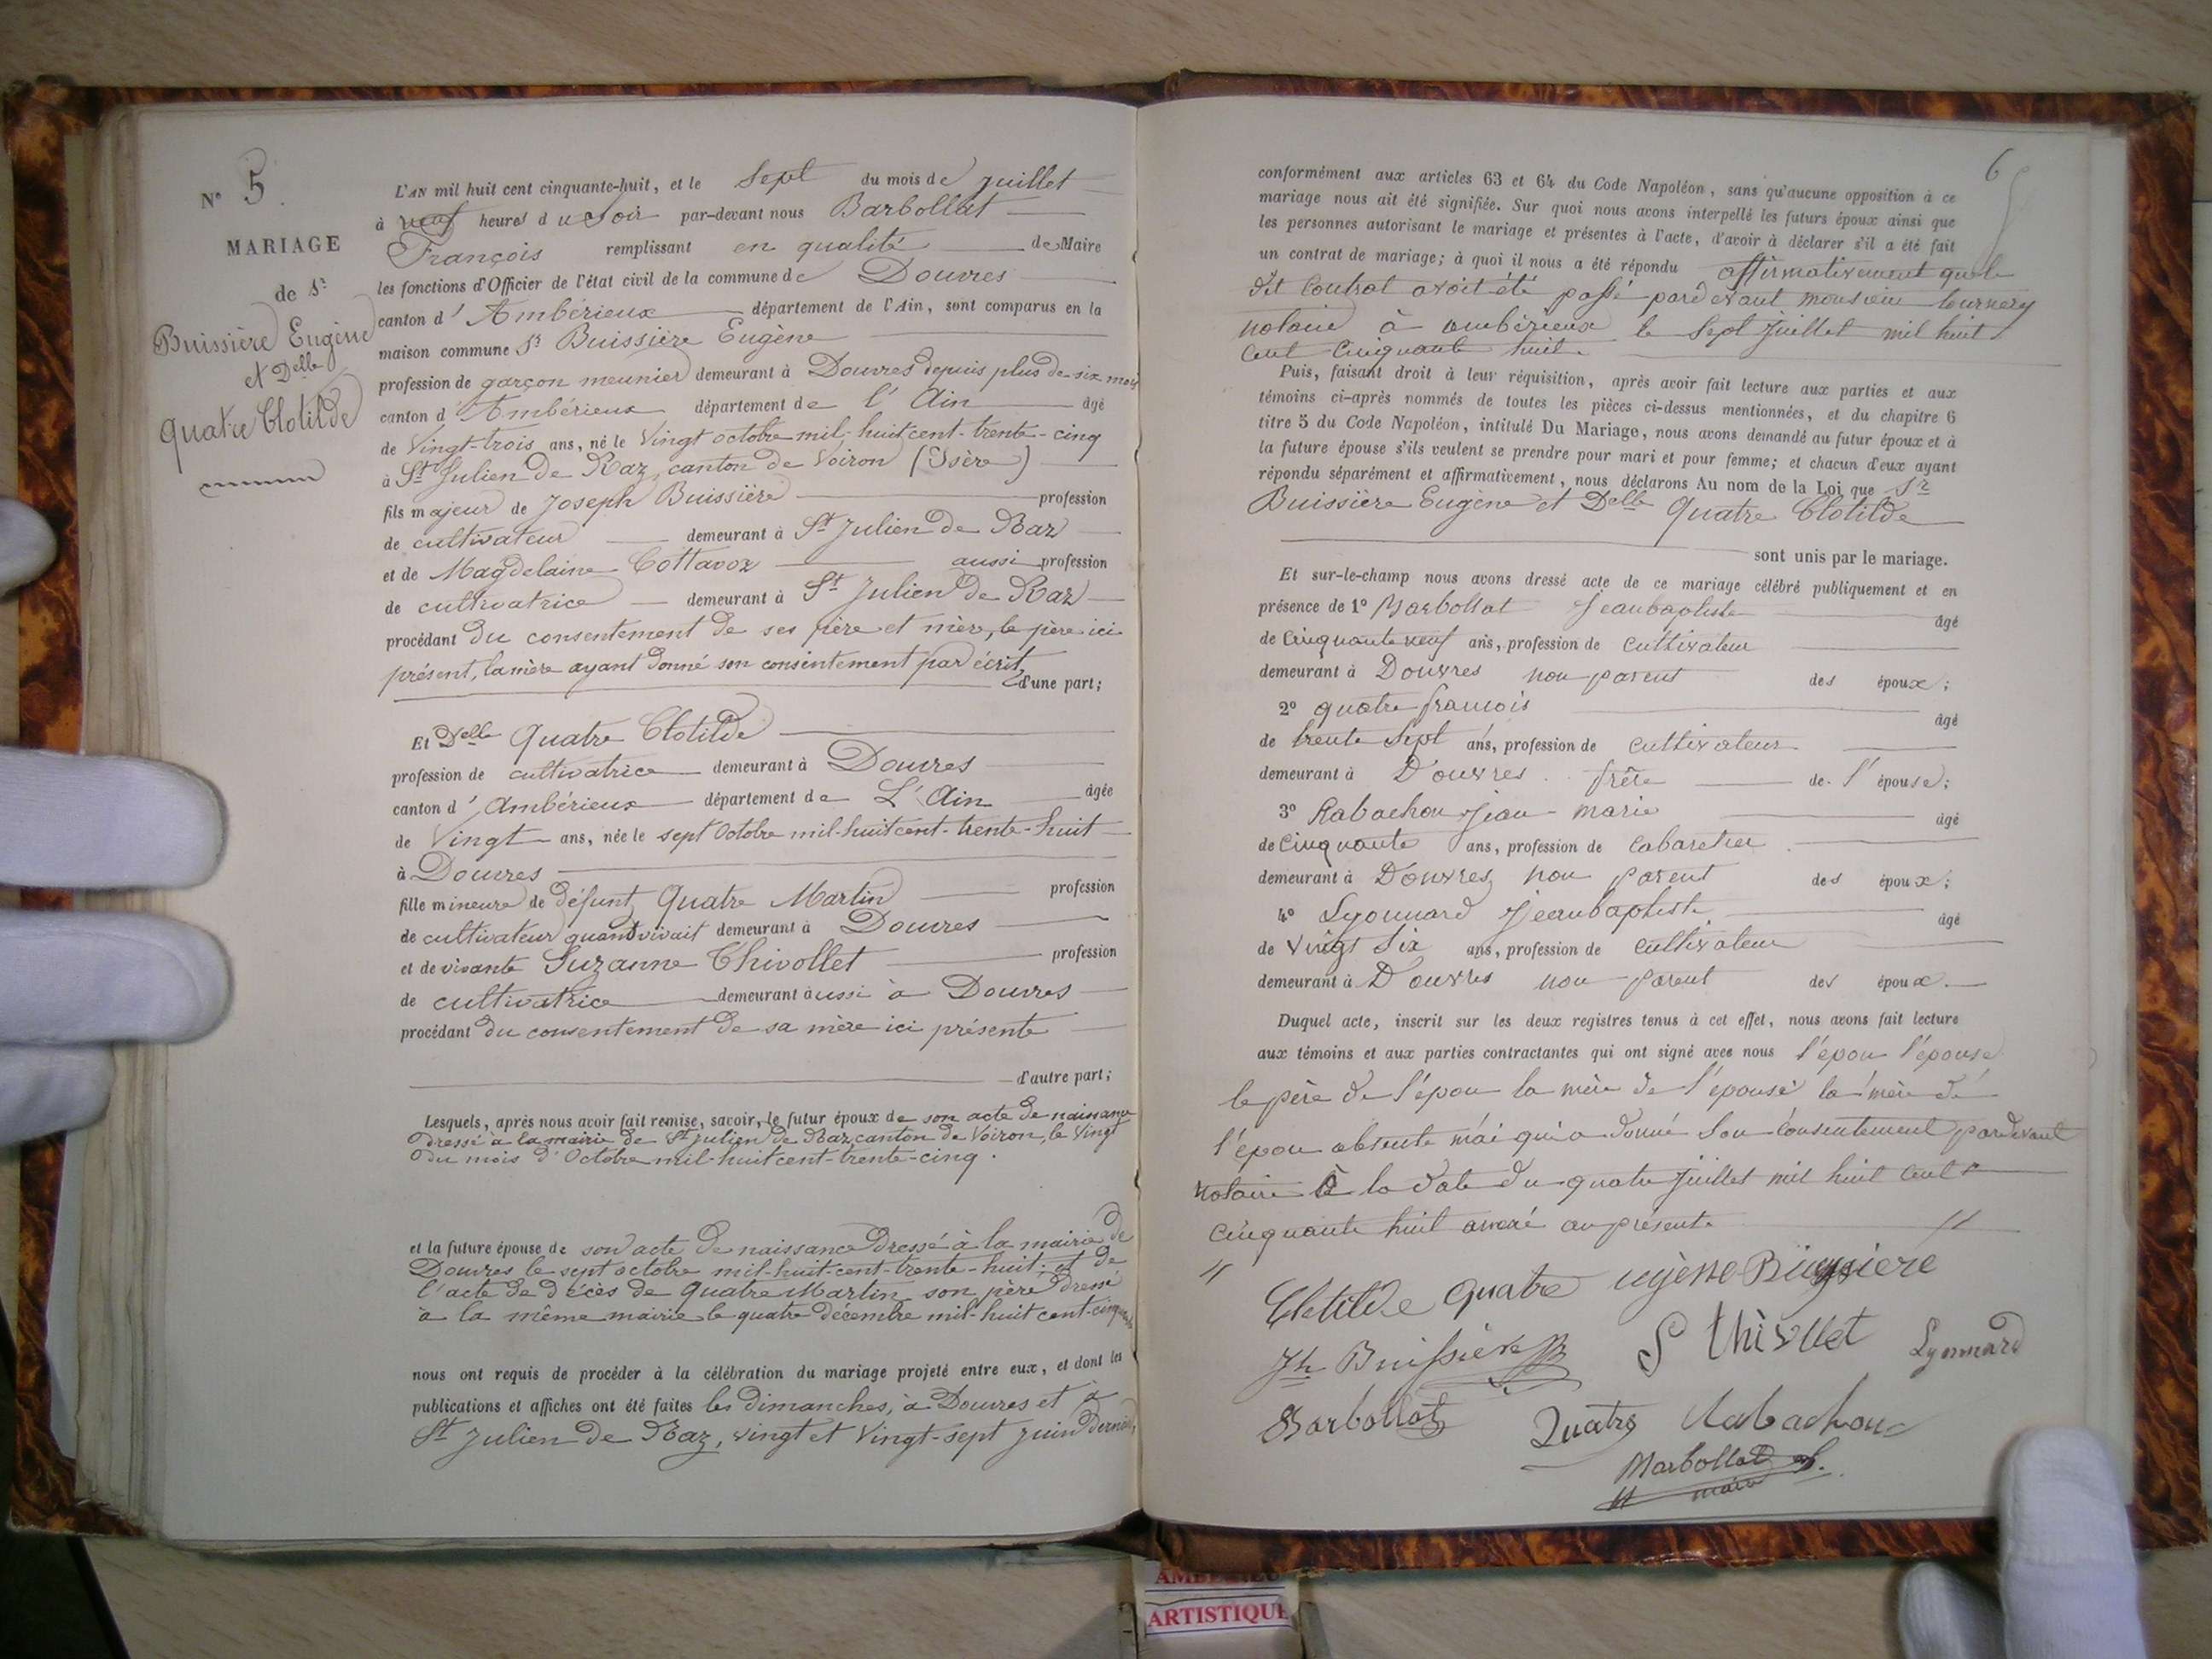 N° 5.
MARIAGE
de Sr
Buissière Eugène
et Delle
Quatre Clotilde
L'AN mil huit cent cinquante-huit, et le Sept du mois de Juillet
à neuf heures du soir par-devant nous Barbollat
François remplissant en qualité de Maire
les fonctions d'Officier de l'état civil de la commune de Douvres
canton d' Ambérieux département de l'Ain, sont comparus en la
maison commune Sr Buissière Eugène
profession de garçon meunier demeurant à Douvres depuis plus de six mois
canton d' Ambérieux département de l'Ain âgé
de Vingt-trois ans, né le Vingt octobre mil-huit cent-trente-cinq
à St Julien de Raz, canton de Voiron (Isère)
fils majeur de Joseph Buissière profession
de cultivateur demeurant à St Julien de Raz
et de Magdelaine Cottavoz aussi profession
de cultivatrice demeurant à St Julien de Raz
procédant du consentement de ses père et mère, le père ici
présent, la mère ayant donné son consentement par écrit,
d'une part;
Et Delle Quatre Clotilde
profession de cultivatrice demeurant à Douvres
canton d' Ambérieux département de L'Ain âgée
de Vingt ans, née le sept Octobre mil-huit cent-trente-huit
à Douvres
fille mineure de défunt Quatre Martin profession
de cultivateur quand vivait demeurant à Douvres
et de vivante Suzanne Chivollet profession
de cultivatrice demeurant aussi à Douvres
procédant du consentement de sa mère ici présente
d'autre part;
Lesquels, après nous avoir fait remise, savoir, le futur époux de son acte de naissance
dressé à la mairie de St Julien de Raz, canton de Voiron, le Vingt
du mois d'Octobre mil-huit cent-trente-cinq.
et la future épouse de son acte de naissance dressé à la mairie de
Douvres le sept octobre mil-huit-cent-trente-huit; et de
l'acte de décès de Quatre Martin son père dressé
à la même mairie le quatre décembre mil-huit cent-cinquante
nous ont requis de procéder à la célébration du mariage projeté entre eux, et dont les
publications et affiches ont été faites les dimanches, à Douvres et à
St Julien de Raz, vingt et Vingt-sept Juin derniers,
6
conformément aux articles 63 et 64 du Code Napoléon, sans qu'aucune opposition à ce
mariage nous ait été signifiée. Sur quoi nous avons interpellé les futurs époux ainsi que
les personnes autorisant le mariage et présentes à l'acte, d'avoir à déclarer s'il a été fait
un contrat de mariage; à quoi il nous a été répondu affirmativement que le
dit Contrat avoit été passé pardevant monsieur
notaire à ambérieux le Sept Juillet mil huit
cent cinquante huit.
Puis, faisant droit à leur réquisition, après avoir fait lecture aux parties et aux
témoins ci-après nommés de toutes les pièces ci-dessus mentionnées, et du chapitre 6
titre 5 du Code Napoléon, intitulé Du Mariage, nous avons demandé au futur époux et à
la future épouse s'ils veulent se prendre pour mari et pour femme; et chacun d'eux ayant
répondu séparément et affirmativement, nous déclarons Au nom de la Loi que Sr
Buissière Eugène et Delle Quatre Clotilde
sont unis par le mariage.
Et sur-le-champ nous avons dressé acte de ce mariage célébré publiquement et en
présence de 1° Barbollat Jeanbaptiste âgé
de Cinquante neuf ans, profession de cultivateur
demeurant à Douvres non parent des époux;
2° quatre francois âgé
de trente Sept ans, profession de cultivateur
demeurant à Douvres frère de l'épouse;
3° Rabachon Jean-marie âgé
de Cinquante ans, profession de Cabaretier
demeurant à Douvres non parent des époux;
4° Lyonnard Jeanbaptiste âgé
de Vingt Six ans, profession de cultivateur
demeurant à Douvres non parent des époux.
Duquel acte, inscrit sur les deux registres tenus à cet effet, nous avons fait lecture
aux témoins et aux parties contractantes qui ont signé avec nous l'épou l'épouse
le père de l'épou la mère de l'épouse la mère de
l'épou absente mai qui a donné Son Consentement pardevant
notaire à la date du quatre Juillet mil huit Cent
Cinquante huit anexé au présent.
Clotilde Quatre eugène Buissière
Jh Buissière S Chivllet Lyonnard
Barbollat Quatre Rabachon
Barbollat f.
maire
AMBÉRIEU
ARTISTIQUE